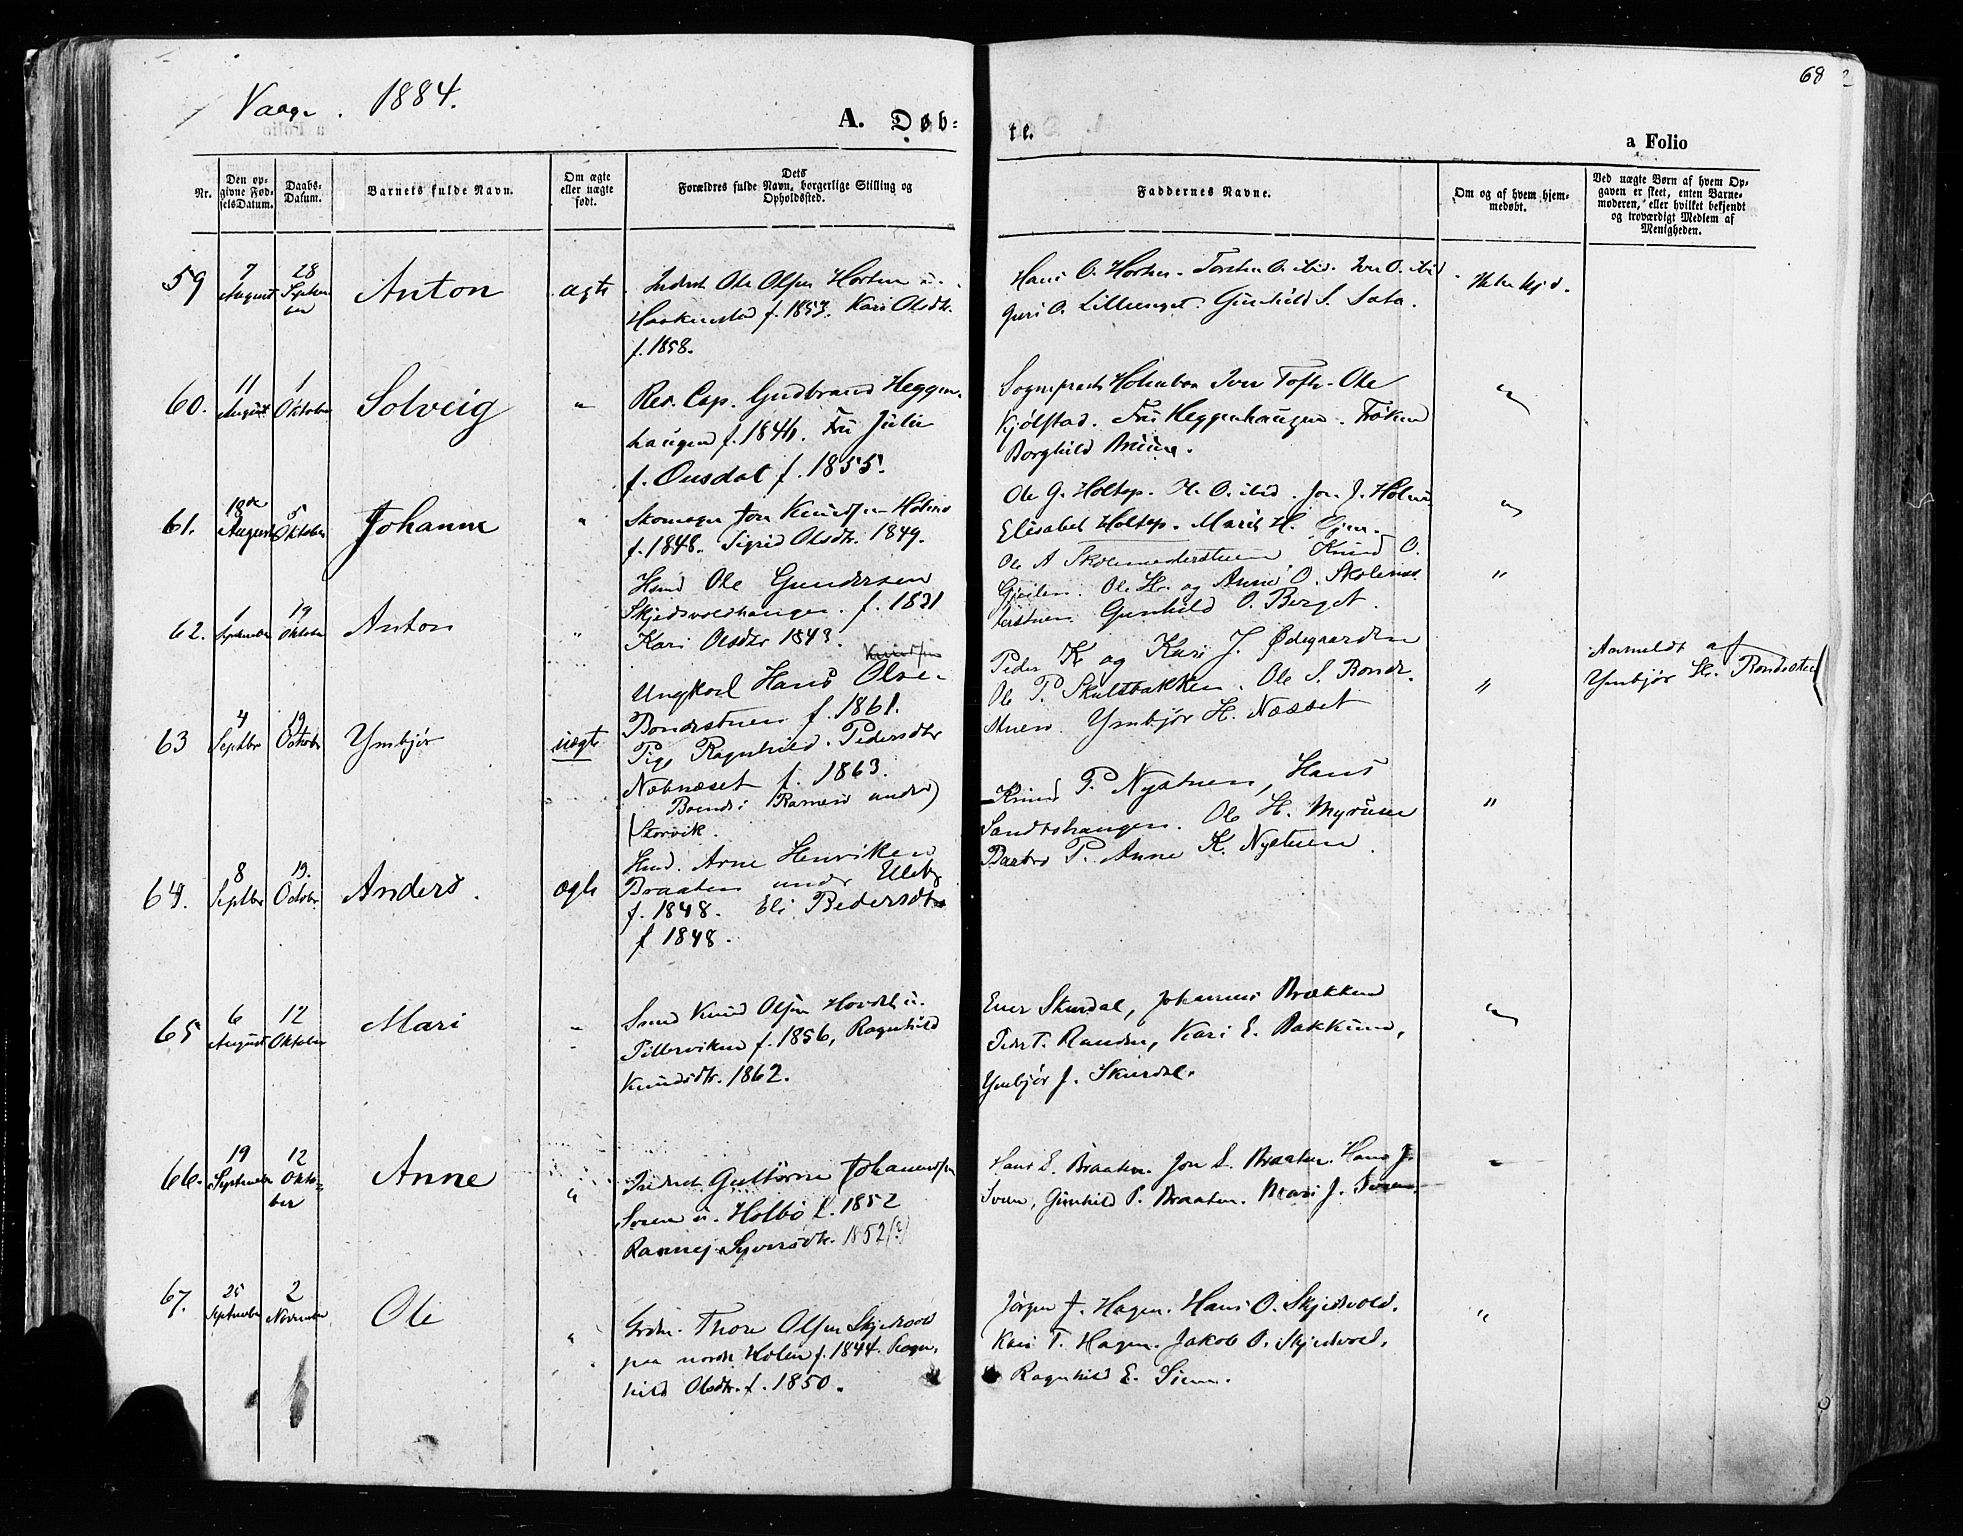 Vaage. 1884.
A. Døb-
te.
68
a Folio
Nr.
Den op-
givne Fød-
selsDatum.
Daabs-
Datum.
Barnets fulde Navn.
Om ægte
eller uægte
født.
Dets
Forældres fulde Navn, borgerlige Stilling og
Opholdssted.
Faddernes Navne.
Om og af hvem hjem-
medøbt.
Ved uægte Børn af hvem Op-
gaven er skeet, enten Barne-
moderen, eller hvilket bekjendt
og troværdigt Medlem af
Menigheden.
59
7
August
28
Septem
ber
Anton
ægte
Inderst Ole Olsen Horten u.
Haakenstad f. 1853. Kari Olsdtr.
f. 1858.
Hans O. Horten. Torsten O. ibid. Iver O. ibid
Guri O. Lillienget. Gunhild S. Sata.
Ikke hjd.
60.
11
August
1
Oktober
Solveig
"
Res. Cap. Gudbrand Heggen-
haugen f. 1846. Fru Julie
f. Onsdal f. 1855.
Sogneprest Holmboe Iver Tofte. Ole
Kjølstad. Fru Heggenhaugen. Frøken
Borghild
"
61.
18de
August
5
Oktober
Johanne
"
Skomager Jon Knudsen Holins
f. 1848. Sigrid Olsdtr. 1849.
Ole G. Holtep. H. O. ibid. Jon J.
Elisabet Holtep. Marit H.
"
62.
1
September
19
Oktober
Anton
"
Hsmd Ole Gundersen
Skjedsvoldhaugen. f. 1831
Kari Olsdtr 1843.
Ole A Skolemesterstuen Knud O.
Gjeilen. Ole H. og Anne O. Skolemes
terstuen Gunhild O. Berget.
"
63
4
Septbr
19
Octobr
Ymbjør
uægte
Knudsen
Ungkarl Hans Olse-
Bondestuen f. 1861.
Pige Ragnhild Pedersdtr
Nebnæset f. 1863.
Boende: Ramen under)
(Storvik.
Peder K. og Kari J. Ødegaarden
Ole P. Skultbakken. Ole S. Bonde-
stuen Ymbjør H. Næsset
"
Anmeldt af
Ymbjør H. Bondestuen
64.
8
Septbr
19.
Octobr.
Anders.
ægte
Hmd. Arne Henriksen
Braaten under Ulekg
f. 1848. Eli Pedersdtr
f 1848.
Knud P. Nystuen, Hans
Sandbohaugen. Ole H. Myruen
Barbro P. Anne K. Nystuen.
"
65
6
August
12
Oktober
Mari
"
Knud Olsen Hovdet u.
Tillerviken f. 1856, Ragnhild
Knudsdtr. 1862.
Iver Skurdal, Johannes Brækken
Peder T. Randen, Kari E. Bakkene,
Ymbjør J. Skurdal.
"
66.
19
September
12
Okto-
ber
Anne
"
Inderst Guttorm Johannessen
Sveen u. Holbø f. 1852
Rannej Syversdtr. 1852(?)
Hans S. Braaten. Jon S. Braaten. Hans J.
Sveen, Gunhild P. Braaten. Mari J. Sveen.
"
67.
25
September
2
November
Ole
"
Grdbr. Thore Olsen Skjedsvold
paa nordr. Holen f. 1844. Ragn-
hild Olsdtr. f. 1850.
Jørgen J. Hagen. Hans O. Skjedsvold.
Kari T. Hagen. Jakob O. Skjedsvold.
Ragnhild E.
"